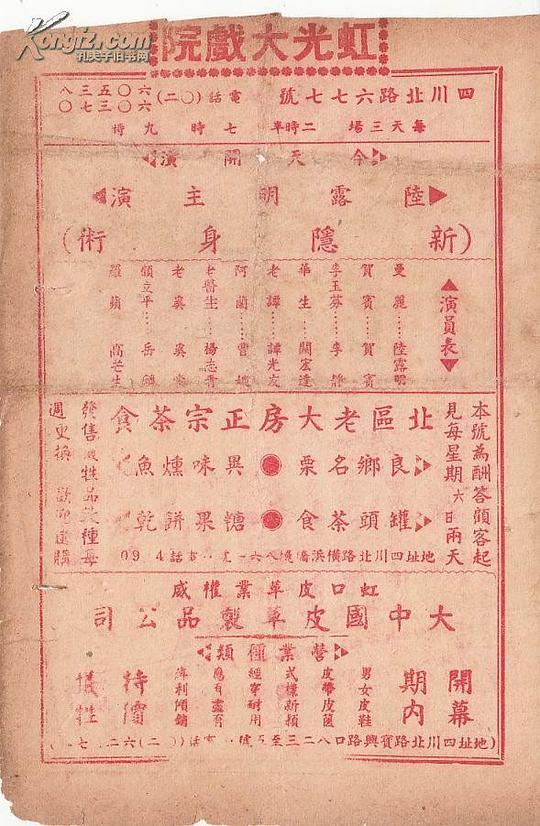 Kongfz.com
孔夫子旧书网
虹光大戲院
四川北路六七七號 電話(〇二)六〇五三八 六〇三七〇
每天三場 二時半 七時 九時
今天開演
陸露明主演
(新隱身術)
演員表
曼麗……陸露明
賀賓……賀賓
李玉芬……李靜
華生……關宏達
老譚……譚光友
阿蘭……曹
老醫生……楊志卿
老吳……吳
顧立平……岳
羅蘋 高芒生
本號為酬答顧客起
見每星期六日兩天
北區老大房正宗茶食
良鄉名栗 異味燻魚
罐頭茶食 糖果餅乾
發售犧牲品
週更換 歡迎選購
地址四川北路橫浜橋
虹口皮革業權威
大中國皮革製品公司
營業種類
開幕
期內
男女皮鞋
皮帶皮篋
式樣新穎
經穿耐用
應有盡有
薄利傾銷
特價
犧牲
地址四川北路寶興路口八二三至五號